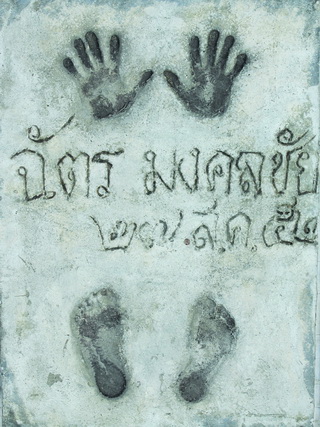 ฉัตร มงคลชัย
๒๗.ส.ค.๕๒